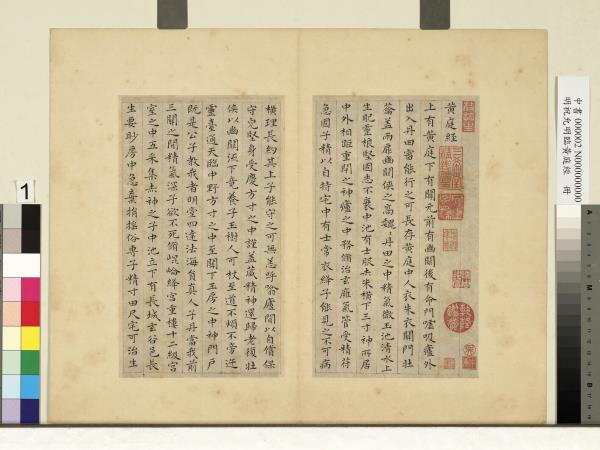 黃庭經
上有黃庭下有關元前有幽闕後有命門噓吸廬外
出入丹田審能行之可長存黃庭中人衣朱衣關門壯
籥蓋兩扉幽闕俠之高魏魏丹田之中精氣微玉池清水上
生肥靈根堅固志不衰中池有士服赤朱橫下三寸神所居
中外相距重閉之神廬之中務脩治玄廱氣管受精符
急固子精以自持宅中有士常衣絳子能見之不可病
橫理長尺約其上子能守之可無恙呼噏廬間以自償保
守完堅身受慶方寸之中謹蓋藏精神還歸老復壯
俠以幽闕流下竟養子玉樹人可杖至道不煩不旁迕
靈臺通天臨中野方寸之中至關下玉房之中神門戶
既是公子教我者明堂四達法海負真人子丹當我前
三關之間精氣深子欲不死脩崐崘絳宮重樓十二級宮
室之中五采集赤神之子中池立下有長城玄谷邑長
生要眇房中急棄捐搖俗專子精寸田尺宅可治生
中書 000002 N000000000
明祝允明臨黃庭經 冊
1